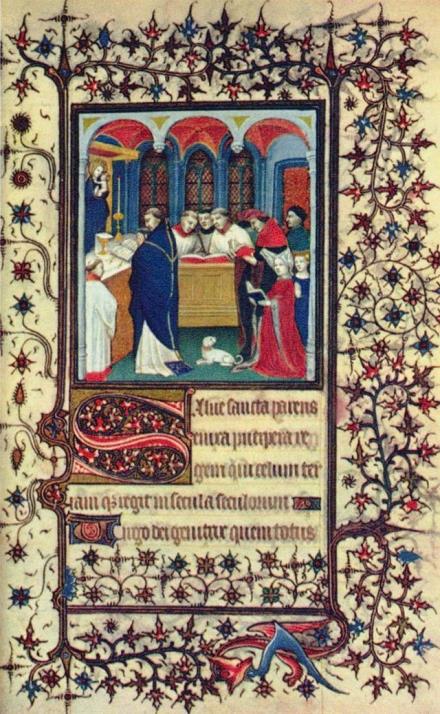 Salue sancta parens
enixa puerpera re
gem qui celum ter
ram qʒ regit in secula seculorum
Uirgo dei genitrix quem totus